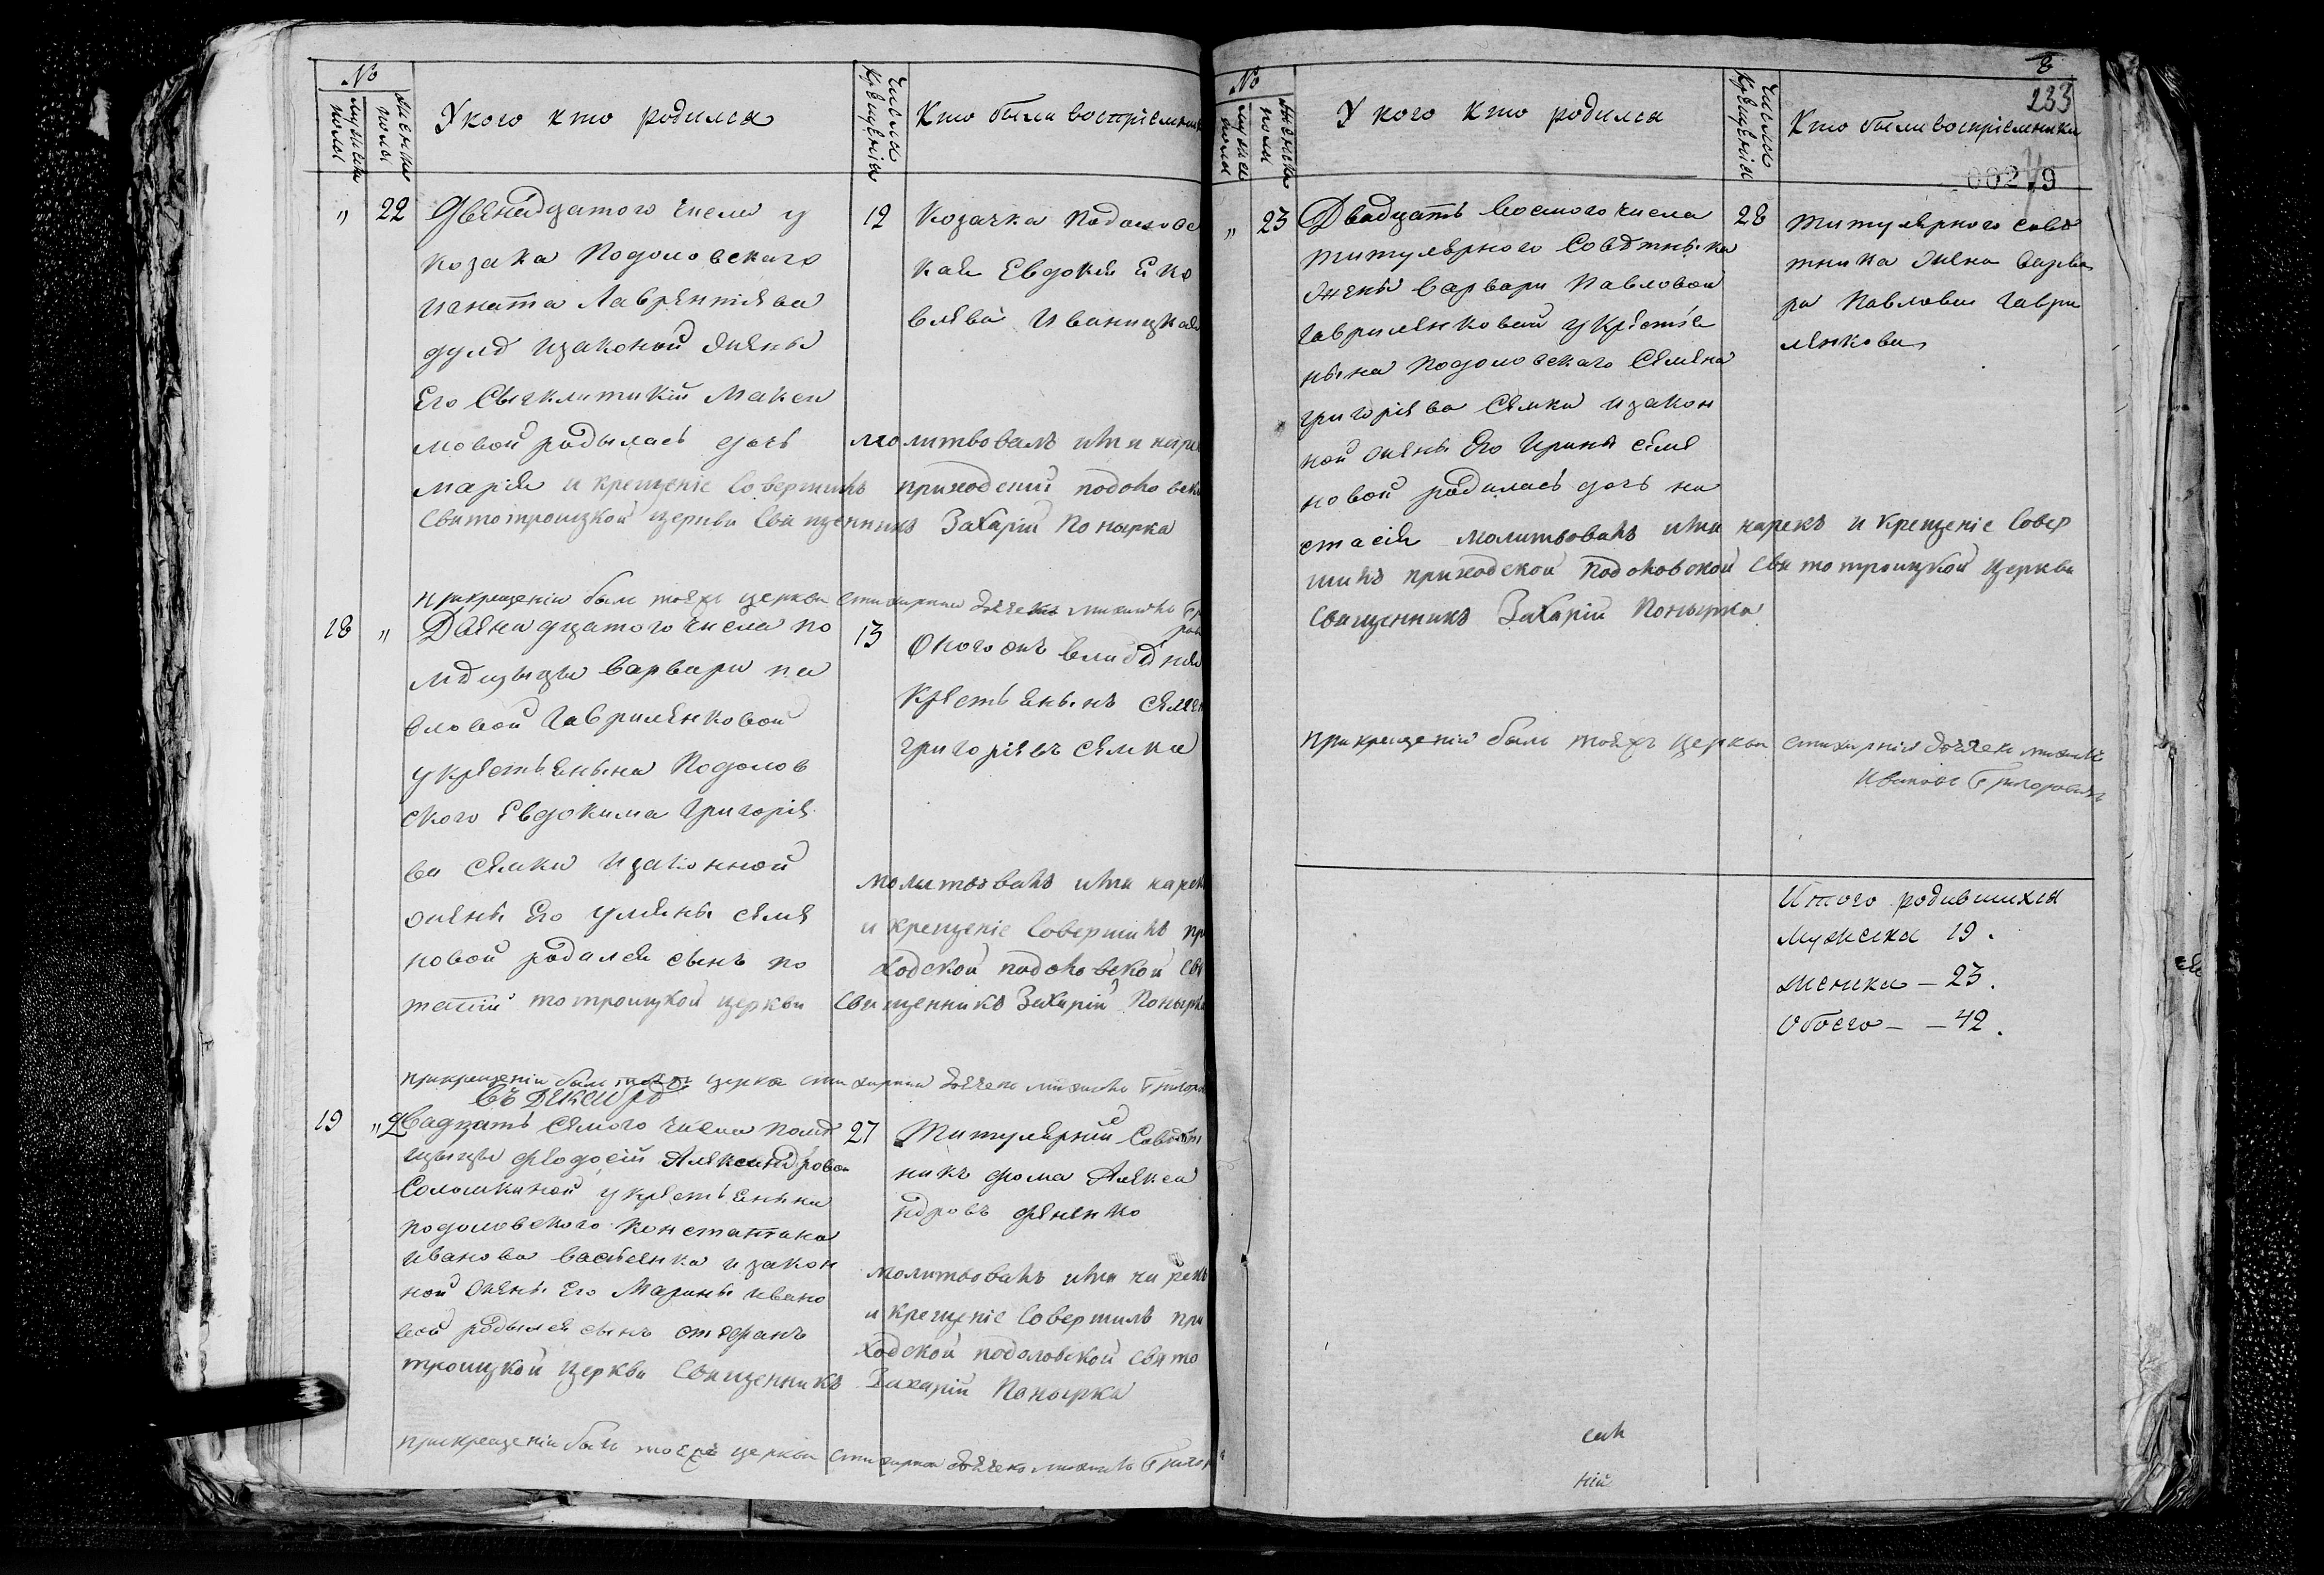 №
мужеска пола
женска пола
У кого кто родился
Числа крещенія
Кто были воспріемники
" 22
Двенадцатого числа у
козака Подоловскаго
Игната Лаврентіева
изаконой жены
Его Макси
мовой родылась дочь
марія и крещеніе Совершилъ
Святотроицкой церкви Священникъ Захарій Понырка
12
Козачка Подоловс
кая Евдокія Яко
влева Иваницкая
молитвовалъ имя наре
приходский подоловской
при крещеніи былъ тояжъ церкви стихарний дьячекъ михаилъ
18 "
Двенадцатого числа по
мѣщыцы Варвары па
вловой Гавриленковой
у крестьянына Подолов
ского Евдокима Григоріе
ва Семки изаконной
жены Его Уляны Семе
новой родился сынъ по
тапій тотроицкой церкви Священникъ Захарій Понырка
13
Крестьянынъ Семен
Григоріевъ Семка
молитвовалъ имя нареч
и крещеніе Совершилъ при
ходской подоловской Свя
при крещеніи былъ тояжъ церкви стихарний дьячекъ михаилъ Григоров
Въ Декабрѣ
19 "
Двадцать Семого числа помѣ
щыцы Феодосій Александровой
Соломкиной у крестьянына
подоловского Константина
Иванова Василенка и закон
ной жены Его Марины Ивано
вой родылся сынъ стефанъ
троицкой церкви Священникъ Захарій Понырка
27
Титулярный Совѣт
никъ Фома Алекса
ндровъ Фененко
молитвовалъ имя нарекъ
и крещеніе Совершилъ при
ходской подоловской Свято
при крещеніи былъ тояжъ церкви стихарний дьячекъ михаилъ Григор
8
233
00279
№
мужеска пола
женска пола
У кого кто родился
Числа крещенія
Кто были воспріемники
" 23
Двадцать восмого числа
титулярного Совѣтныка
жены Варвары Павловой
Гавриленковой у крестья
нына Подоловскаго Семена
Григоріева Семки и закон
ной жены Его Ирины Семе
новой родилась дочь на
стасія молитвовалъ имя нарекъ и крещеніе Совер
шилъ приходской Подоловской Святотроицкой церкви
Священникъ Захарій Понырка
28
Титулярного Совѣ
тника жена Варва
ра Павлова Гаври
ленкова
при крещеніи былъ тояжъ церкви стихарний дьячекъ михаилъ
Ивановъ Григоровичъ
Итого родившихся
Мужска 19.
женска – 23.
Обоего – – 42.